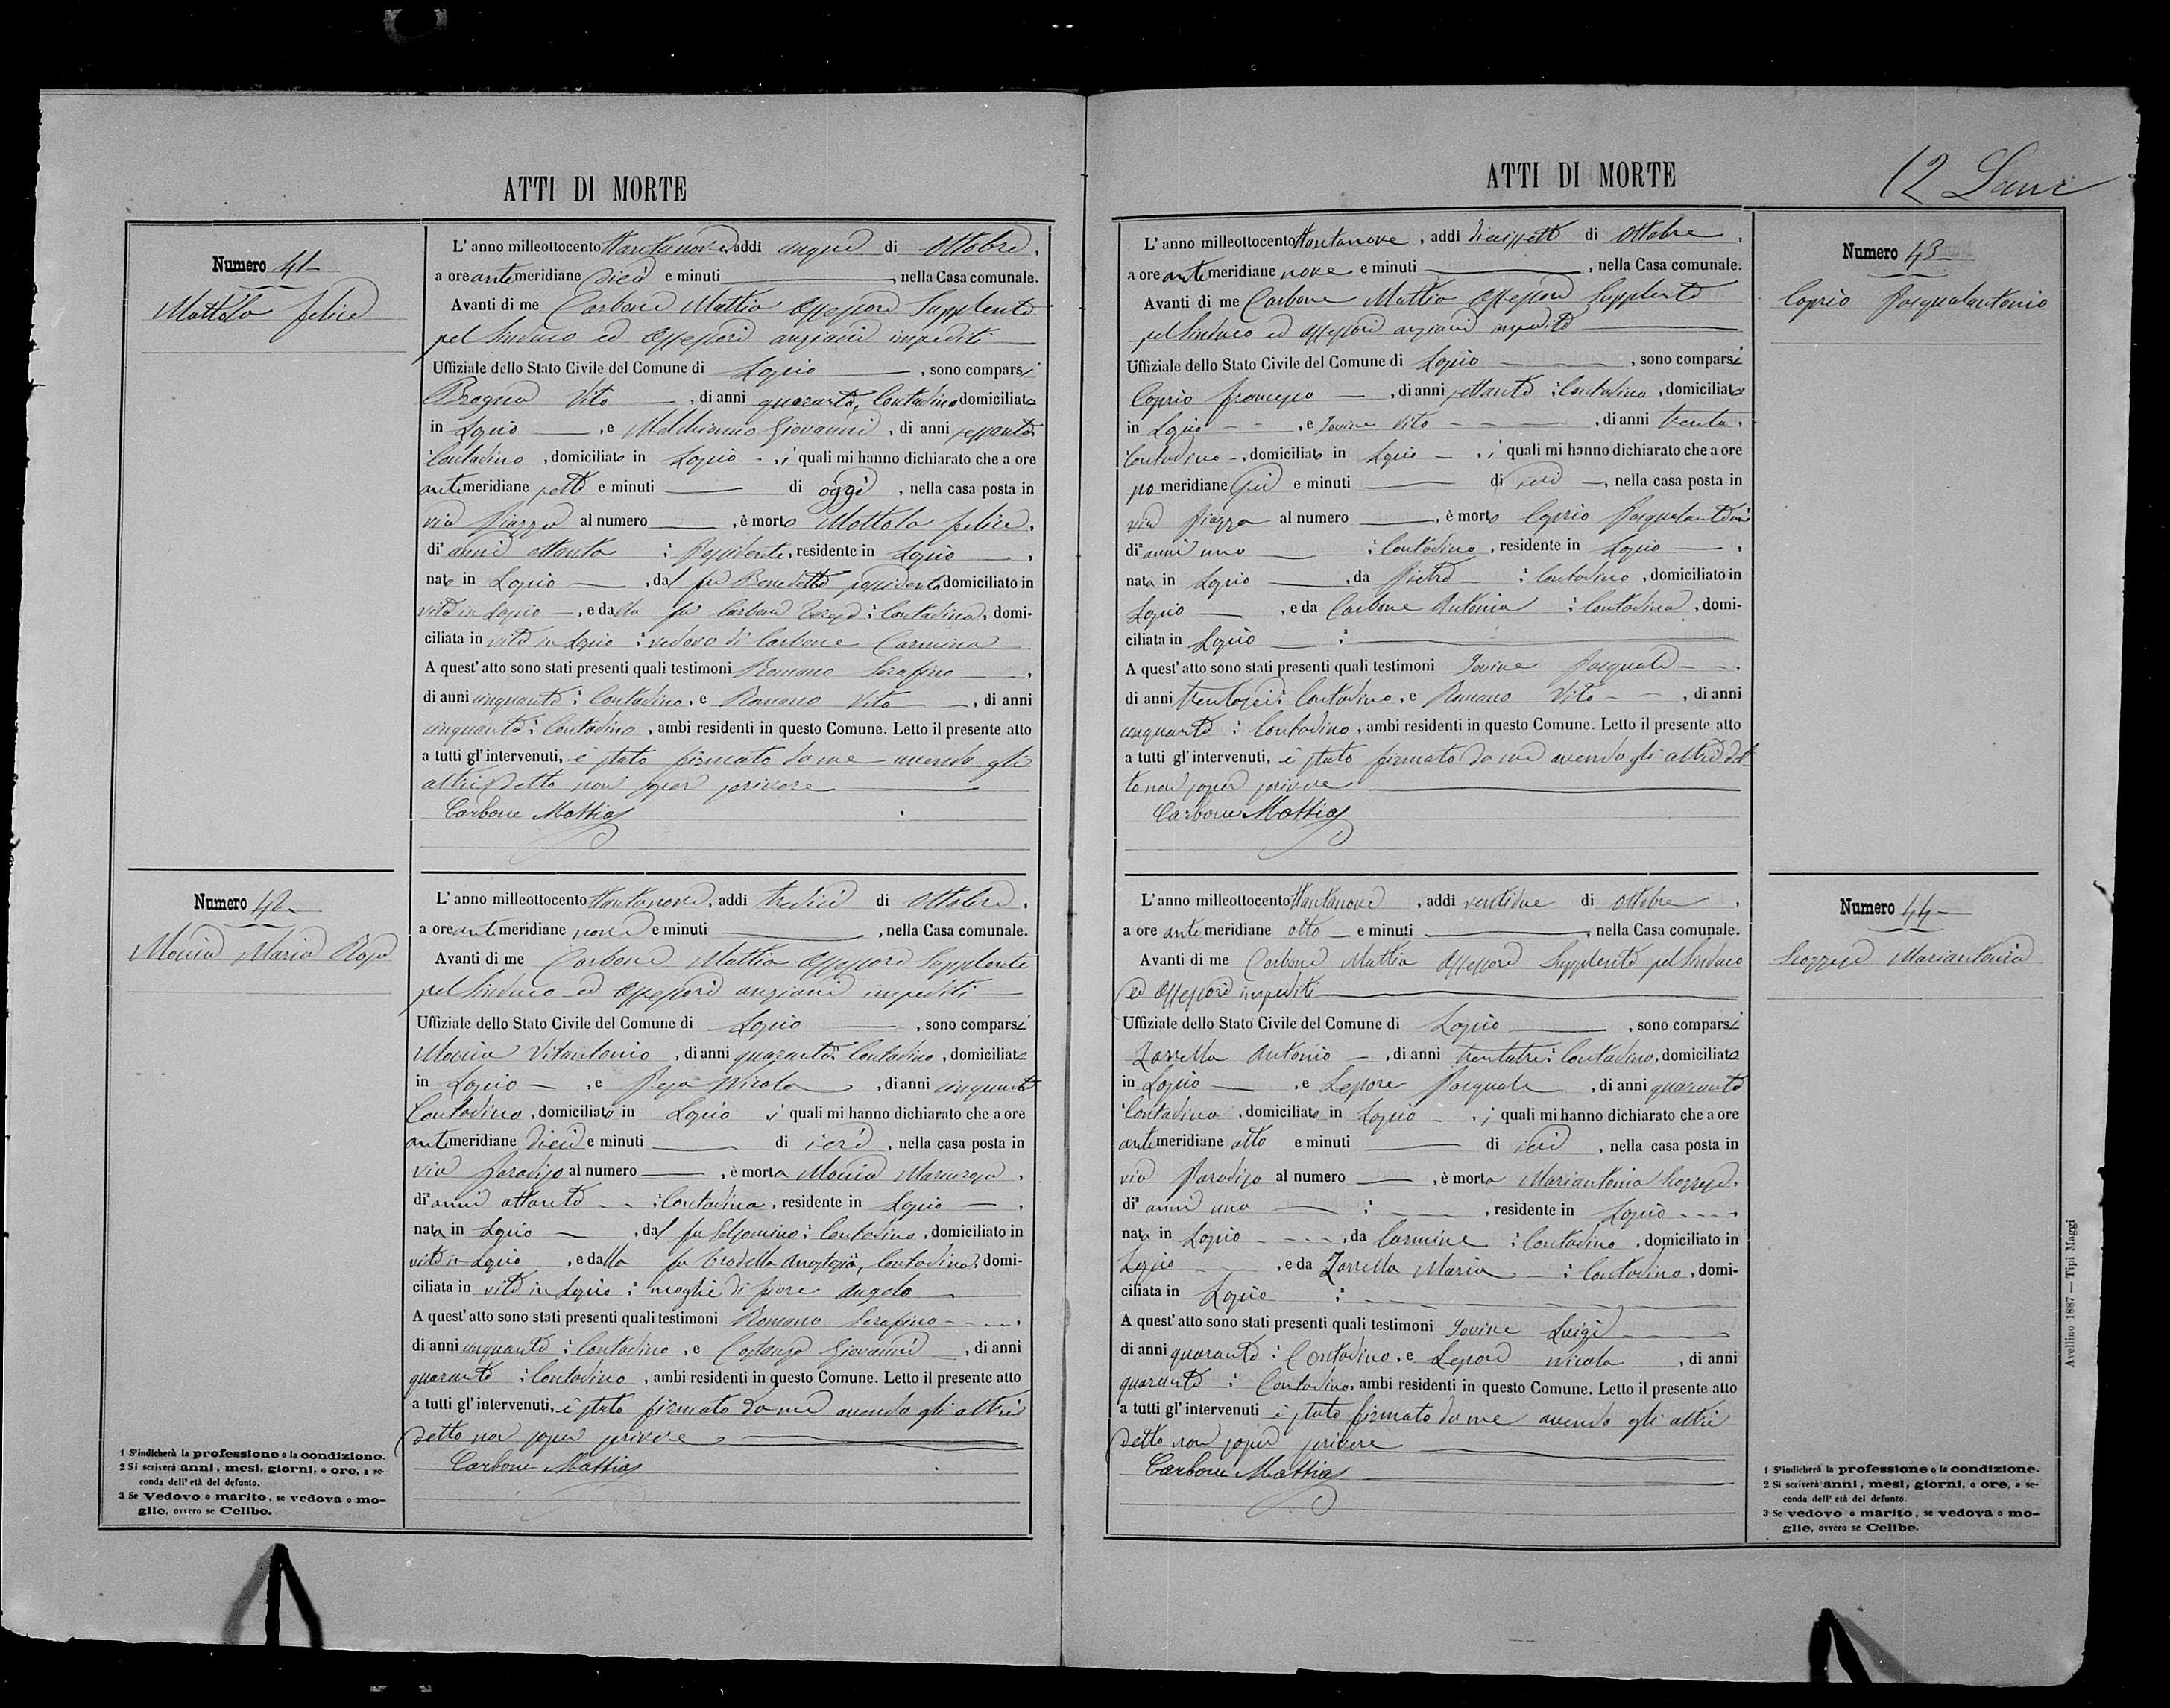 ATTI DI MORTE
Numero 41
Mottola Felice
L' anno milleottocento ottantanove, addì cinque di Ottobre,
a ore antemeridiane dieci e minuti ———, nella Casa comunale.
Avanti di me Carbone Mattia Assessore Supplente
pel Sindaco ed Assessori anziani impediti
Uffiziale dello Stato Civile del Comune di Lapio ———, sono comparsi
Brogna Vito ———, di anni quaranta, Contadino domiciliato
in Lapio ———, e Melchionno Giovanni, di anni sessanta
Contadino, domiciliato in Lapio, i quali mi hanno dichiarato che a ore
antemeridiane sette e minuti ——— di oggi, nella casa posta in
via Piazza al numero ———, è morto Mottola Felice,
di anni ottanta : Possidente, residente in Lapio ———,
nato in Lapio ———, dal fu Benedetto possidente domiciliato in
vita in Lapio —, e dalla fu Carbone Teresa : Contadina, domi-
ciliata in vita in Lapio : vedovo di Carbone Carmina
A quest' atto sono stati presenti quali testimoni Romano Serafino ———,
di anni cinquanta : Contadino, e Romano Vito ———, di anni
cinquanta : Contadino, ambi residenti in questo Comune. Letto il presente atto
a tutti gl' intervenuti, è stato firmato da me avendo gli
altri detto non saper scrivere
Carbone Mattia
Numero 42
Moccia Maria Rosa
L' anno milleottocento ottantanove, addì tredici di Ottobre,
a ore antemeridiane nove e minuti ———, nella Casa comunale.
Avanti di me Carbone Mattia Assessore Supplente
pel Sindaco ed Assessori anziani impediti
Uffiziale dello Stato Civile del Comune di Lapio ———, sono comparsi
Moccia Vitantonio, di anni quaranta : Contadino, domiciliato
in Lapio —, e Pesa Nicola, di anni cinquanta
Contadino, domiciliato in Lapio, i quali mi hanno dichiarato che a ore
antemeridiane dieci e minuti ——— di ieri, nella casa posta in
via Paradiso al numero ———, è morta Moccia Mariarosa,
di anni ottanta : Contadina, residente in Lapio —,
nata in Lapio —, dal fu : Contadino, domiciliato in
vita in Lapio, e dalla fu, Contadina, domi-
ciliata in vita in Lapio : moglie di Fiore Angelo
A quest' atto sono stati presenti quali testimoni Romano Serafino ———,
di anni cinquanta : Contadino, e Costanza Giovanni, di anni
quaranta : Contadino, ambi residenti in questo Comune. Letto il presente atto
a tutti gl' intervenuti, è stato firmato da me avendo gli altri
detto non saper scrivere
Carbone Mattia
1 S'indicherà la professione o la condizione.
2 Si scriverà anni, mesi, giorni, o ore, a se-
conda dell' età del defunto.
3 Se Vedovo o marito, se vedova o mo-
glie, ovvero se Celibe.
ATTI DI MORTE
12
Numero 43
Caprio Pasqualantonio
L' anno milleottocento ottantanove, addì diciassette di Ottobre,
a ore antemeridiane nove e minuti ———, nella Casa comunale.
Avanti di me Carbone Mattia Assessore Supplente
pel Sindaco ed Assessori anziani impediti
Uffiziale dello Stato Civile del Comune di Lapio ———, sono comparsi
Caprio Francesco —, di anni settanta : Contadino, domiciliato
in Lapio - -, e Iovine Vito - —, di anni trenta,
Contadino -, domiciliato in Lapio —, i quali mi hanno dichiarato che a ore
pomeridiane sei e minuti ——— di ieri —, nella casa posta in
via Piazza al numero ———, è morto Caprio Pasqualantonio
di anni uno — : Contadino, residente in Lapio —,
nato in Lapio ———, da Pietro — : Contadino, domiciliato in
Lapio —, e da Carbone Antonia : Contadina, domi-
ciliata in Lapio — : ———
A quest' atto sono stati presenti quali testimoni Iovine Pasquale - -,
di anni trentasei : Contadino, e Romano Vito - —, di anni
cinquanta : Contadino, ambi residenti in questo Comune. Letto il presente atto
a tutti gl' intervenuti, è stato firmato da me avendo gli altri det-
to non saper scrivere
Carbone Mattia
Numero 44
Scozzese Mariantonia
L' anno milleottocento ottantanove, addì ventidue di Ottobre,
a ore antemeridiane otto — e minuti ———, nella Casa comunale.
Avanti di me Carbone Mattia Assessore Supplente pel Sindaco
ed Assessori impediti
Uffiziale dello Stato Civile del Comune di Lapio ———, sono comparsi
Zarrella Antonio —, di anni trentatre : Contadino, domiciliato
in Lapio ———, e Lepore Pasquale, di anni quaranta
Contadino, domiciliato in Lapio -, i quali mi hanno dichiarato che a ore
antemeridiane otto e minuti ——— di ieri, nella casa posta in
via Paradiso al numero ———, è morta Mariantonia Scozzese,
di anni una ——— : ———, residente in Lapio - - -
nata in Lapio - - - -, da Carmine : Contadino, domiciliato in
Lapio ———, e da Zarrella Maria — : Contadina, domi-
ciliata in Lapio : ———
A quest' atto sono stati presenti quali testimoni Iovine Luigi ———
di anni quaranta : Contadino, e Lepore Nicola, di anni
quaranta : Contadino, ambi residenti in questo Comune. Letto il presente atto
a tutti gl' intervenuti è stato firmato da me avendo gli altri
detto non saper scrivere
Carbone Mattia
1 S'indicherà la professione o la condizione.
2 Si scriverà anni, mesi, giorni, o ore, a se-
conda dell' età del defunto.
3 Se vedovo o marito, se vedova o mo-
glie, ovvero se Celibe.
Avellino 1887 — Tipi Maggi